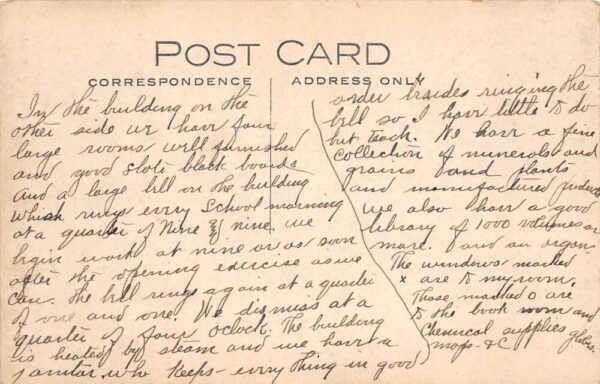 POST CARD
CORRESPONDENCE
ADDRESS ONLY
In the building on the
other side we have four
large rooms well furnished
and good slote black boards
And a large bell on the building
which rings every School morning
at a quarter of Nine & nine. we
begin work at nine or as soon
after the opening exercise as we
can. The bell rings again at a quarter
of one and one. We dismiss at a
quarter of four oclock. The building
is heated by steam and we have a
janitor who keeps every thing in good
order besides ringing the
bell so I have little to do
but teach. We have a fine
collection of minerals and
grains and plants
and manufactured
we also have a good
library of 1000 volumes or
more. and an organ
The windows marked
x are to my room.
Those marked o are
to the book room and
Chemical supplies
maps - &C